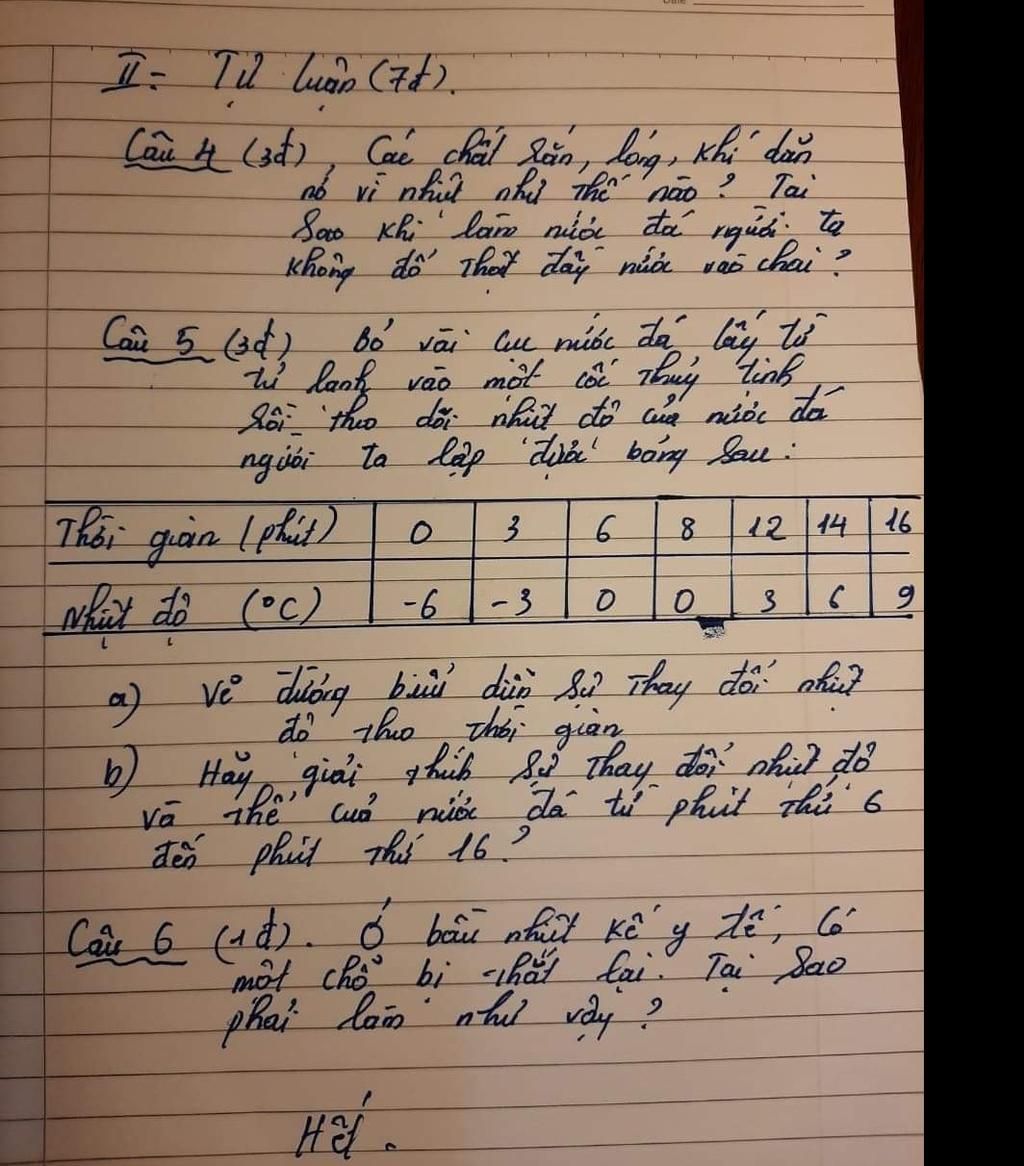 Date
II= Tự luận (7đ).
Câu 4 (3đ), Các chất rắn, lỏng, khí dãn
nở vì nhiệt như thế nào? Tại
Sao khi làm nước đá người ta
không đổ thật đầy nước vào chai?
Câu 5 (3đ) Bỏ vài cục nước đá lấy từ
tủ lạnh vào một cốc thủy tinh
rồi theo dõi nhiệt độ của nước đá
người ta lập được bảng sau:
Thời gian (phút) 0 3 6 8 12 14 16
Nhiệt độ (°C) -6 -3 0 0 3 6 9
a) Vẽ đường biểu diễn sự thay đổi nhiệt
độ theo thời gian
b) Hãy giải thích sự thay đổi nhiệt độ
và thể của nước đá từ phút thứ 6
đến phút thứ 16?
Câu 6 (1đ). Ở bầu nhiệt kế y tế, Có
một chỗ bị thắt lại. Tại Sao
phải làm như vậy?
Hết.